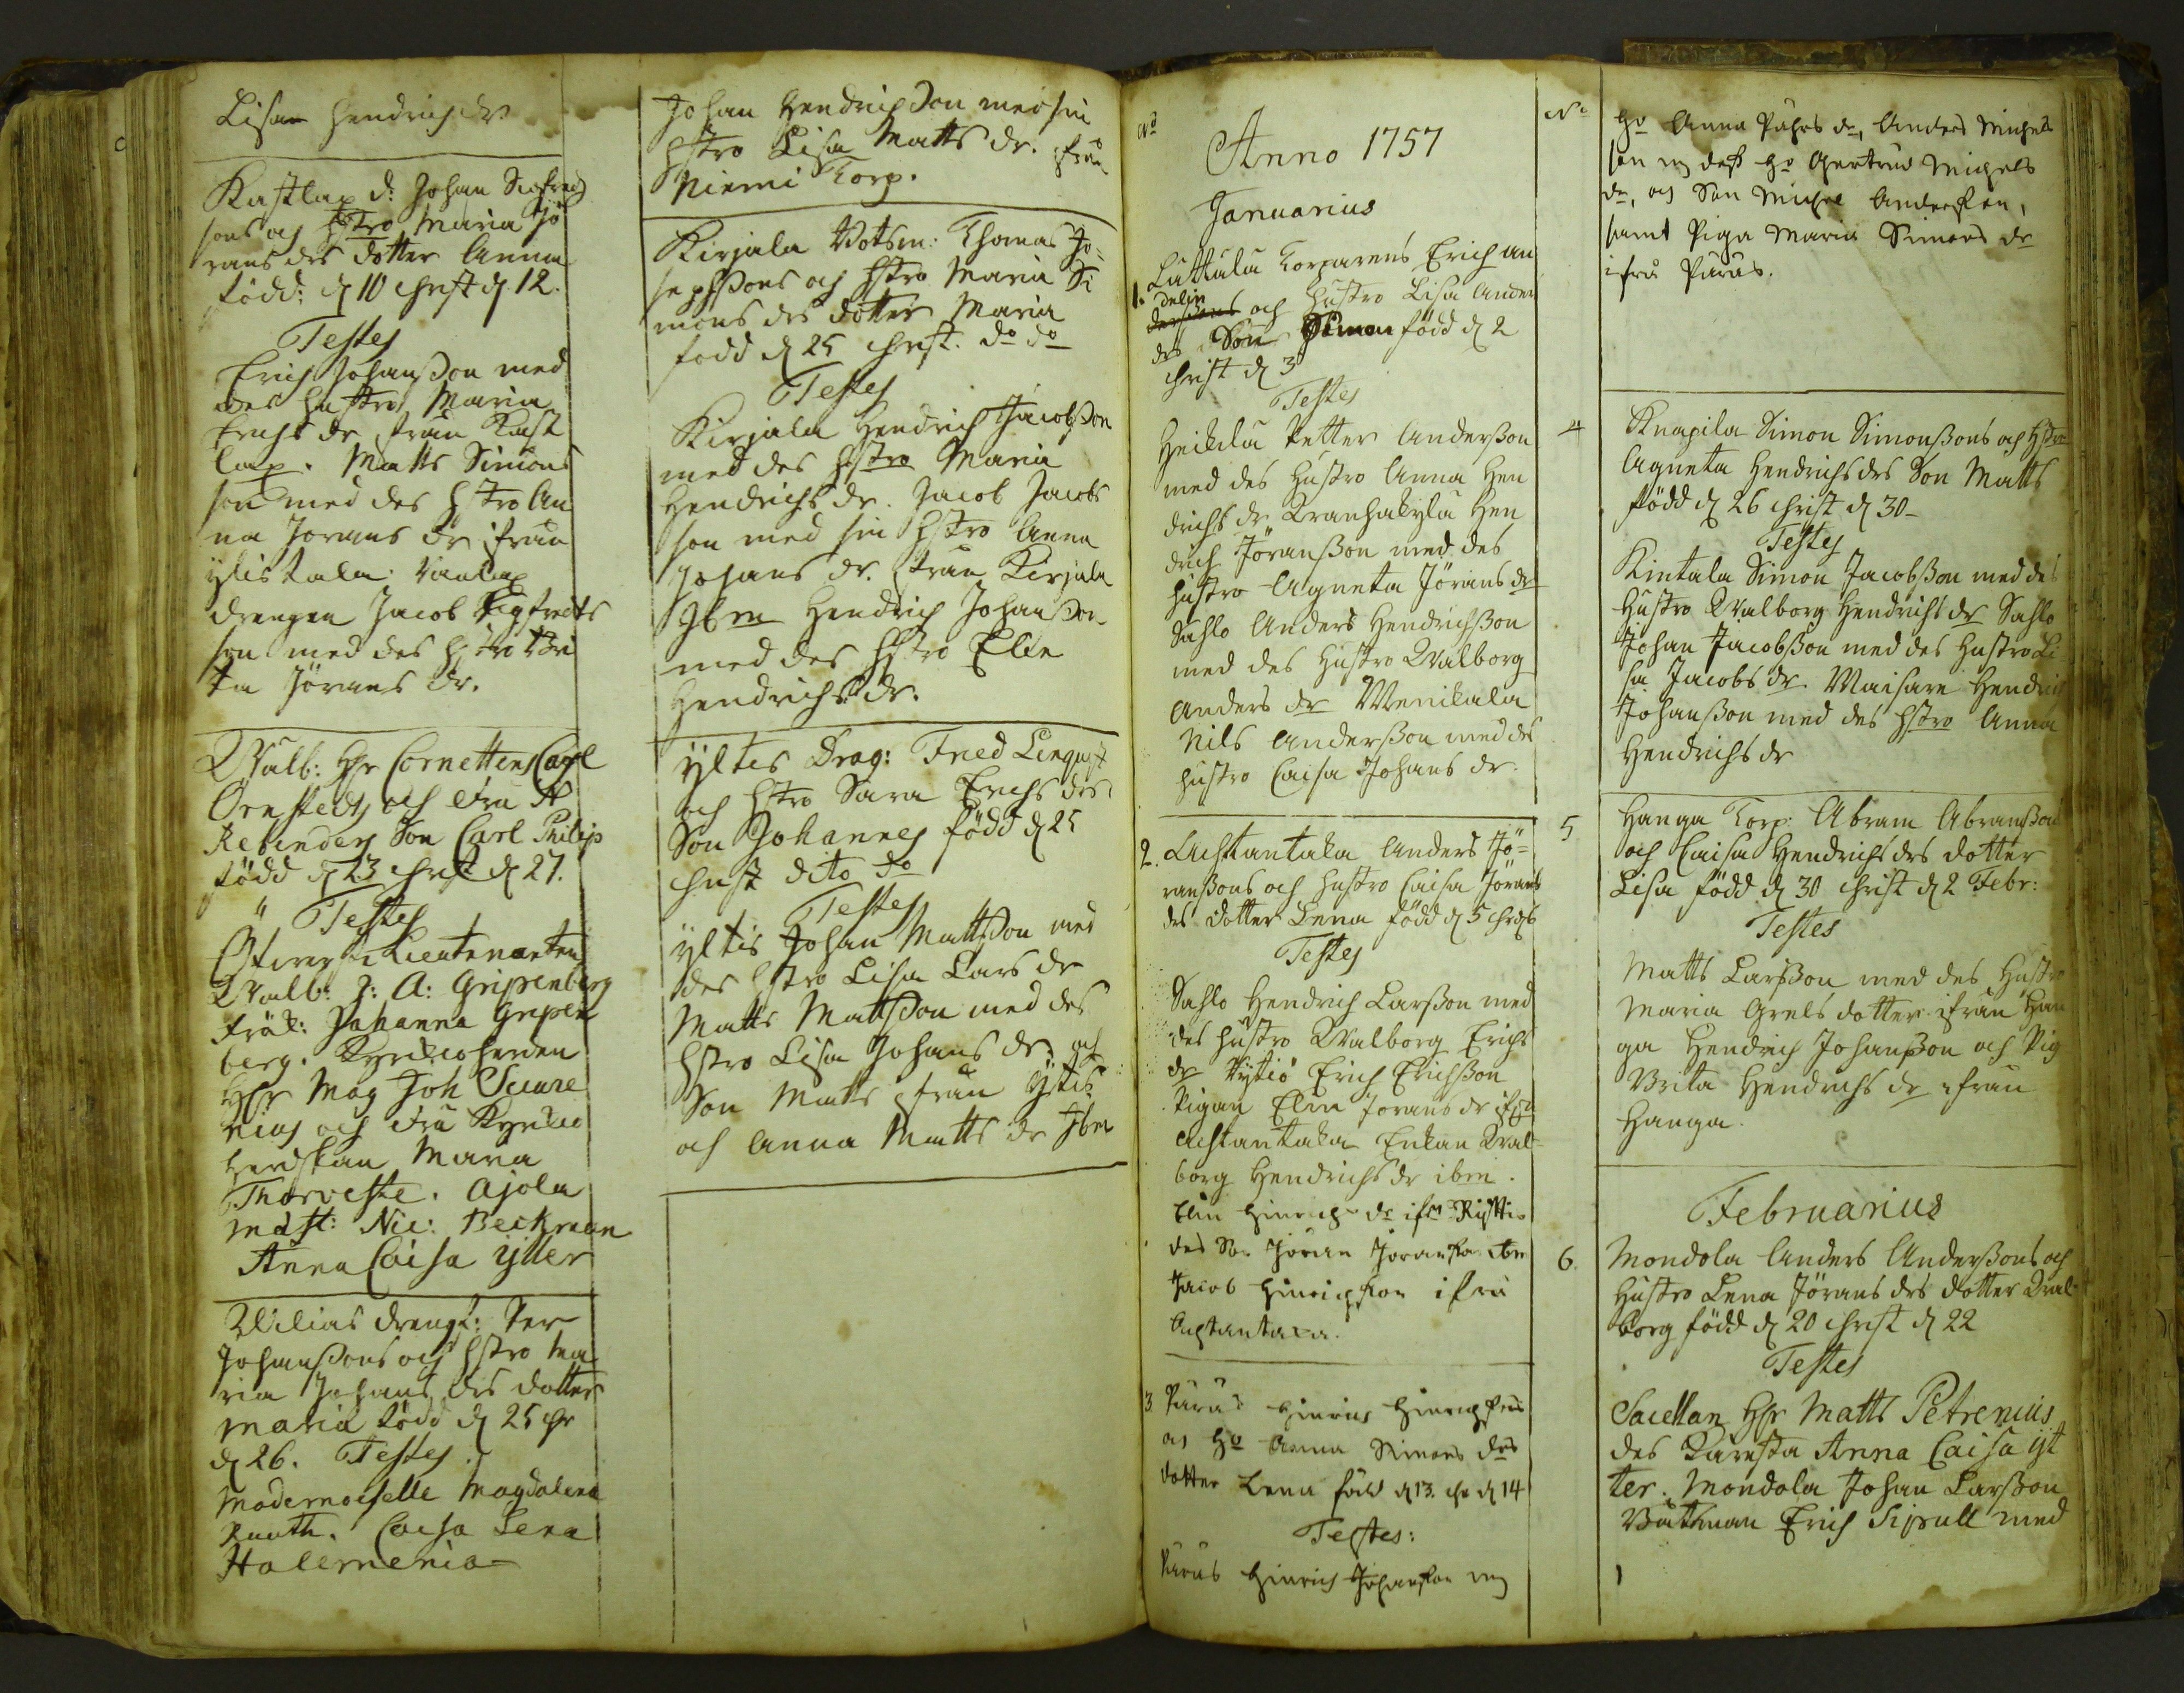 Lisa Hendrichs dr
Kastlax d: Johan Sigfreds
sons och hstro Maria Jö
rans drs dotter Anna
född: d 10 christ d. 12.
Testes
Erich Johansson med
des hustro Maria
Erichs dr, från Kast
lax. Matts Simons
son med des hstro An
na Jörans dr ifrån
drengen Jacob Sigfreds
son med des hstro Bri
ta Jörans dr.
Wålb: Hr Cornettens Carl
Örnstedts och Fru N
Rebinders Son Carl Philip
född d 23 christ d 27.
Testes
Öfverste Lieutenanten
Wälb: J: A: Gripenberg
Frök: Johanna Gripen
berg. Kyrkioherden
Hr Mag Joh
och Fru Kyrkio
herdskan Maria
Thorveste. Ajola
mdst: Nic: Beckman
Anna Caisa ytter
Wilias drengk: Per
Johanssons och hstro Ma
ria Johans drs dotter
Maria född d 25 chr
d 26. Testes.
Mademoiselle Magdalena
Caisa Lena
Halemenia
Johan Hendrichsson med sin
hstro Lisa Matts dr. ifrån
Niemi Torp.
Kirjala Botsm: Thomas Jo=
sephssons och hstro Maria Si
mons drs dotter Maria
född d 25 christ. do do
Testes
Kirjala Hendrich Jacobsson
med des hstro Maria
Hendrichs dr. Jacob Jacobs
son med sin hstro Anna
Johans dr. från Kirjala
Ibm Hendrich Johansson
med des hstro Elin
Hendrichs dr.
Yltes Drag: Fred Lenquist
och hstro Sara Erichs drs
Son Johannes född d 25
christ dito do
Testes
Yltis Johan Mattsson med
des hstro Lisa Lars dr
Matts Mattsson med des
hstro Lisa Johans dr, och
Son Matts ifrån Yltis
och Anna Matts dr Ibm
No
Anno 1757
Januarius
1. Luttula Torparens Erich An
delin
dersons och hustro Lisa Anders
drs Son Simon född d 2
christ d 3
Testes
Heikilä Petter Andersson
med des hustro Anna Hen
drichs dr Hen
drich Jöransson med des
hustro Agneta Jörans dr
Sahlo Anders Hendrichsson
med des hustro Walborg
Anders dr Wenikala
Nils Andersson med des
hustro Caisa Johans dr.
2. Achtantaka Anders Jö=
ranssons och hustro Caisa Jörans
drs dotter Lena född d 5 christ
Testes
Sahlo Hendrich Larsson med
des hustro Walborg Erichs
dr Pytiö Erich Erichsson
Pigan Elin Jörans dr ifrå
Achtantaka Enkan Wal=
borg Hendrichs dr ibm.
Elin Hinrichs dr
des Son Jöran Joransson ibm
Jacob Hinrichsson ifrå
Achtantaka.
3 Purus Hinrich Hinrichsons
och Ho Anna Simons drs
dotter Lena född d 13. chr d 14
Testes:
Purus Hinrich Johansson med
No
Ho Anna dr, Anders Michels
son m dess Ho Gertrud Michels
dr, och Son Michel Andersson,
samt Piga Maria Simons dr
ifrå Purus.
4 Knapila Simon Simonssons och hstro
Agneta Hendrichs drs Son Matts
född d 26 christ d 30
Testes
Kintala Simon Jacobsson med des
Hustro Walborg Hendrichs dr Sahlo
Johan Jacobsson med des Hustro Li
sa Jacobs dr. Maisare Hendrich
Johansson med des hstro Anna
Hendrichs dr
5 Hanga Torp. Abram Abramssons
och Caisa Hendrichs drs dotter
Lisa född d 30 christ d 2 Febr:
Testes
Matts Larsson med des Hustro
Maria Grels dotter ifrån Han
ga Hendrich Johansson och Pig
Brita Hendrichs dr ifrån
Hanga.
Februarius
6. Mondola Anders Anderssons och
Hustro Lena Jörans drs dotter Wal
borg född d 20 christ d 22
Testes
Sacellan Hr Matts Petrenius
des Käresta Anna Caisa yt
ter. Mondola Johan Larsson
Båtsman Erich Sipull med